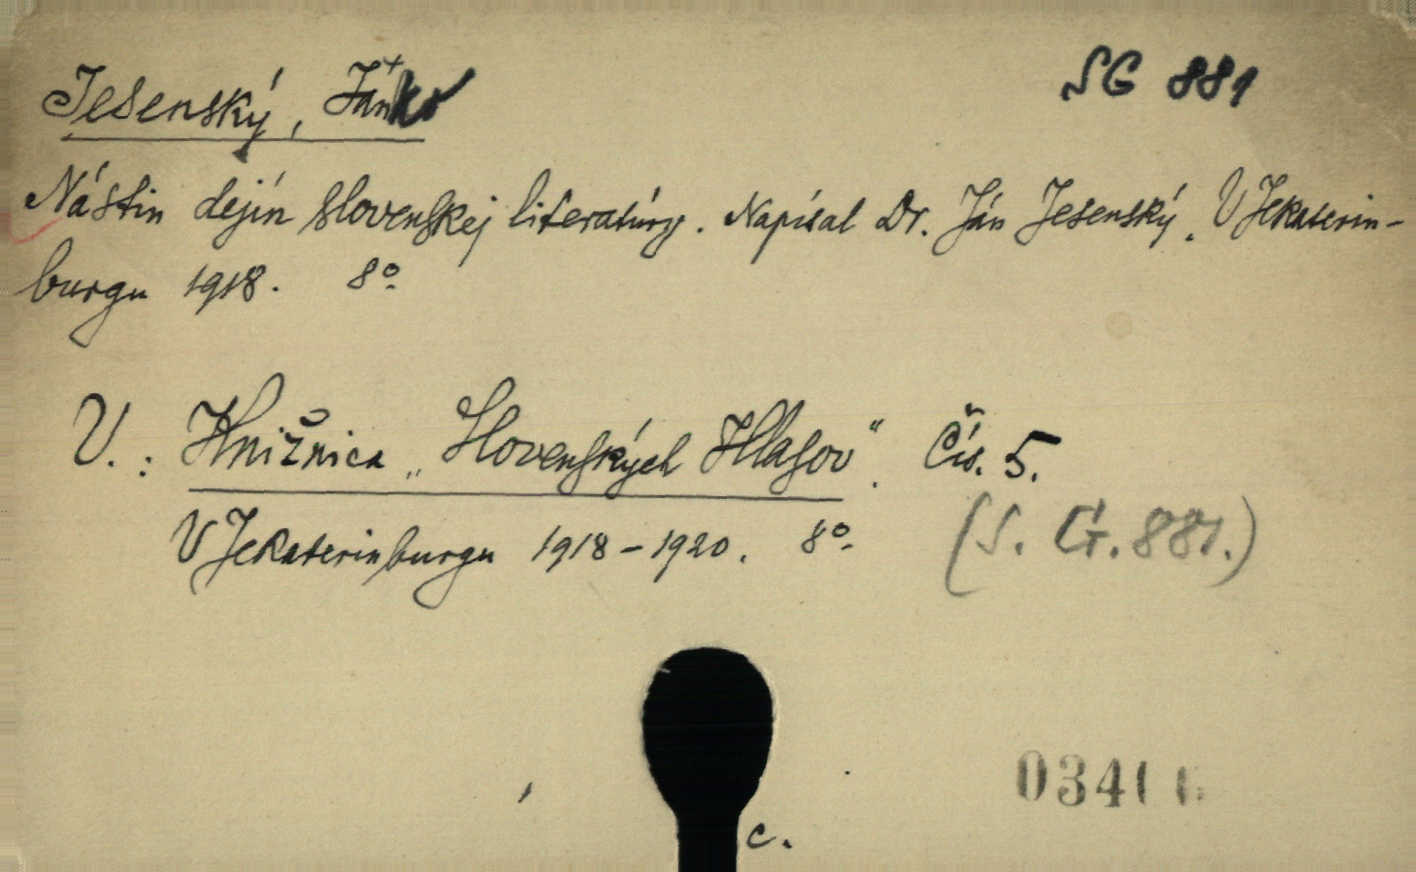 Jesenský, Janko
SG 881
Nástin dejín slovenskej literatúry. Napísal Dr. Ján Jesenský. V Jekaterin-
burgu 1918. 8º
V.: Knižnica „Slovenských Hlasov". Čís. 5.
V Jekaterinburgu 1918-1920. 8º
(S. G. 881.)
c.